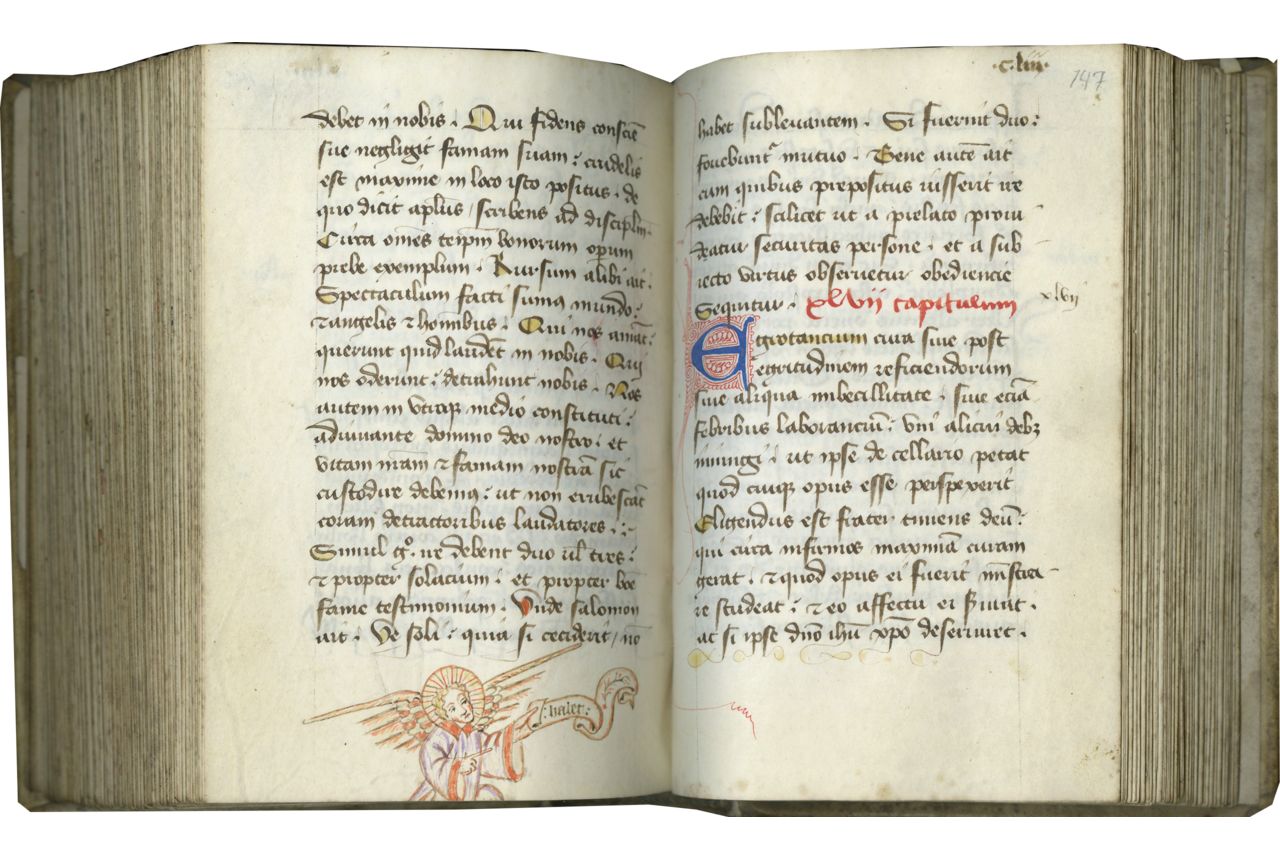 debet in nobis . Qui fidens conscie
sue negligit famam suam : crudelis
est maxime in loco isto positus . de
quo dicit aplus / scribens ad discipln
Circa omes teipm bonorum operum
prebe exemplum . Rursum alibi ait .
Spectaculum facti sumus mundo :
et angelis et hominibus . Qui nos amat :
querunt quid laudet in nobis . Qui
nos oderunt : detrahunt nobis . Nos
autem in utroque medio constituti :
adiuuante domino deo nostro : et
vitam nram et famam nostra sic
custodire debemus : ut non erubescat
coram detractoribus laudatores .
Simul go . ire debent duo ul tres :
et propter solacium : et propter boe
fame testimonium . Unde salomon
ait . Ve soli : quia si ceciderit / no
: habet :
. c . liiij .
147
habet subleuantem . Si fuerint duo :
fouebuntr mutuo . Bene aute ait
cum quibus prepositus iusserit ire
debebit : scilicet ut a prelato proui
deatur securitas persone . et a sub
iecto virtus obseruetur obediencie
Sequitur . xlvii capitulum
xlvij
Egrotancium cura siue post
egritudinem reficiendorum
siue aliqua imbecillitate . siue ecia
febribus laboranciu : vni alicui debz
iniungi . ut ipse de cellario petat
quod cuique opus esse perspexerit
Eligendus est frater timens deu :
qui circa infirmos maxima curam
gerat . et quod opus ei fuerit mistra
re studeat : et eo affectu ei seruiat .
ac si ipse dno ihu xpo deseruiret .